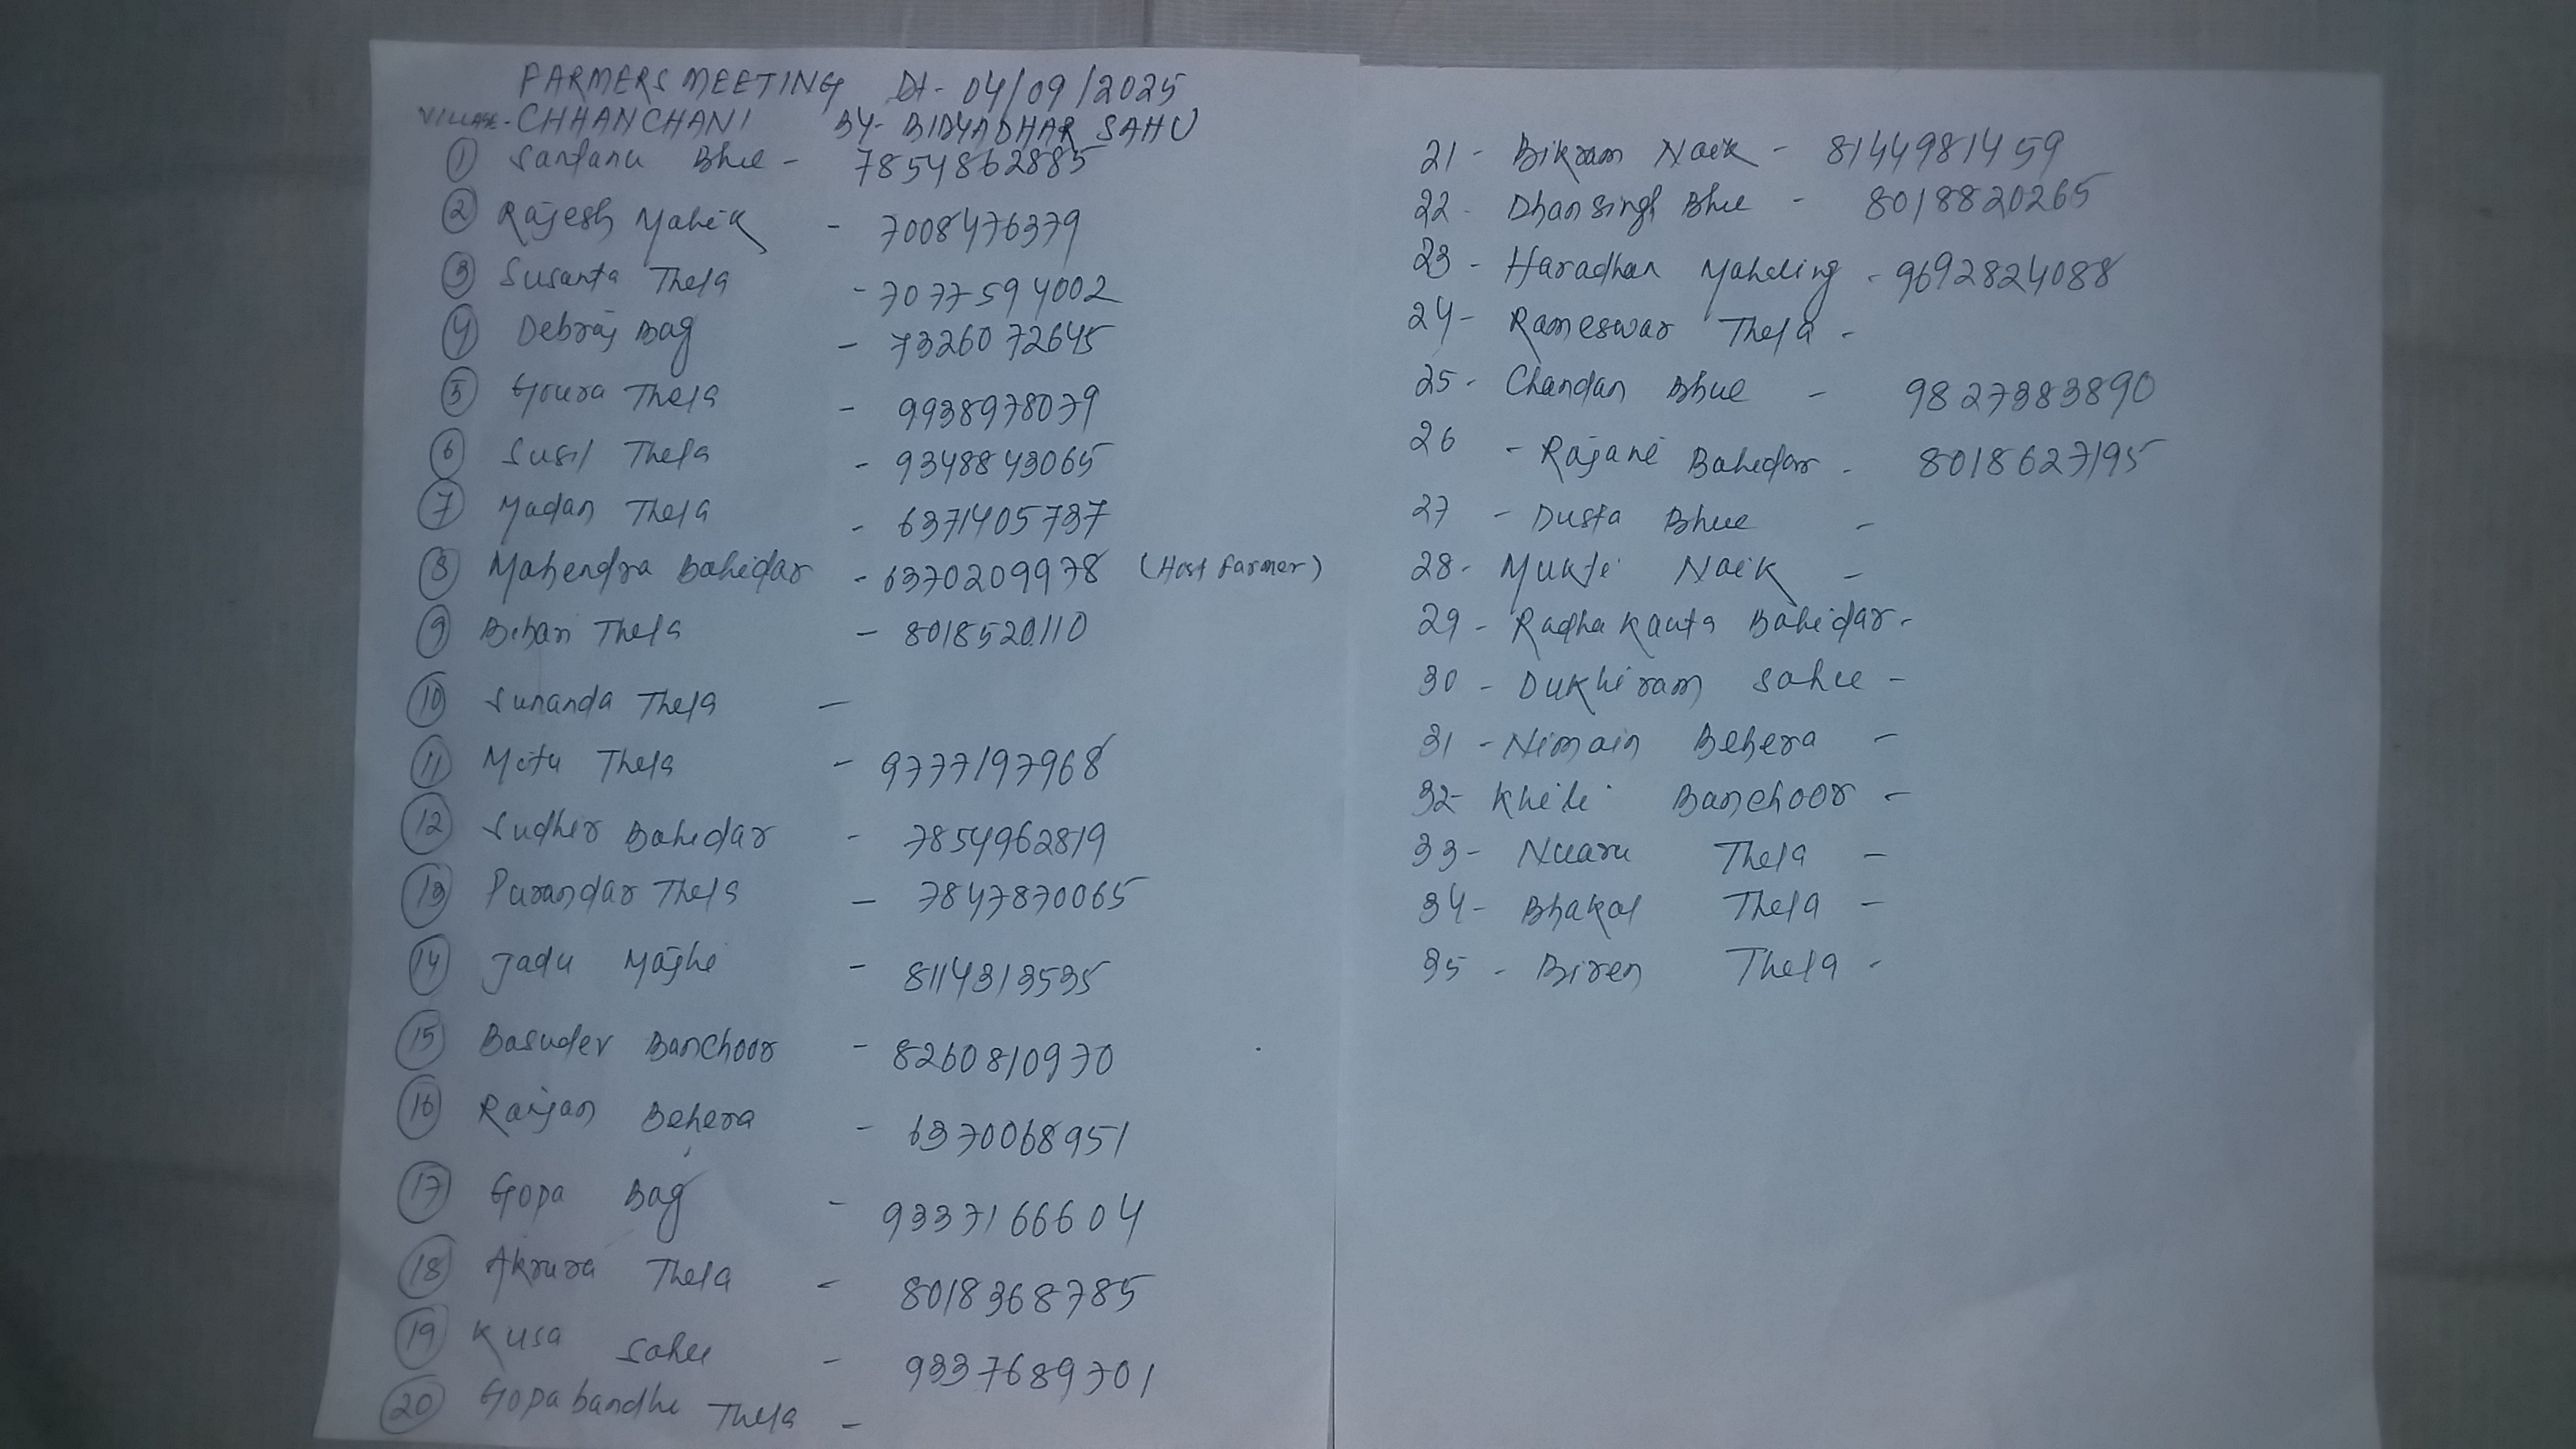 FARMERS MEETING Dt- 04/09/2025
VILLAGE- CHHANCHANI BY- BIDYADHAR SAHU
① Santanu Bhue - 7854862885
② Rajesh Malik - 7008476379
③ Susanta Thela - 7077594002
④ Debraj Bag - 7326072645
⑤ Goura Thela - 9938978079
⑥ Susil Thela - 9348843065
⑦ Madan Thela - 6371405737
⑧ Mahendra Bahidar - 6370209978 (Host farmer)
⑨ Bihari Thela - 8018520110
⑩ Sunanda Thela -
⑪ Motu Thela - 9777197968
⑫ Sudhir Bahidar - 7854962819
⑬ Purandar Thela - 7847870065
⑭ Jadu Majhi - 8114313535
⑮ Basudev Banchoor - 8260810970
⑯ Ranjan Behera - 6370068951
⑰ Gopa Bag - 9337166604
⑱ Akrura Thela - 8018368785
⑲ Kusa Sahu - 9337689701
⑳ Gopabandhu Thela -
21 - Bikram Naik - 8144981459
22 - Dhansingh Bhue - 8018820265
23 - Haradhan Mahaling - 9692824088
24 - Rameswar Thela -
25 - Chandan Bhue - 9827383890
26 - Rajani Bahidar - 8018627195
27 - Dusta Bhue -
28 - Mukti Naik -
29 - Radhakanta Bahidar -
30 - Dukhiram Sahu -
31 - Nimain Behera -
32 - Khili Banchoor -
33 - Nuaru Thela -
34 - Bhakat Thela -
35 - Biren Thela -